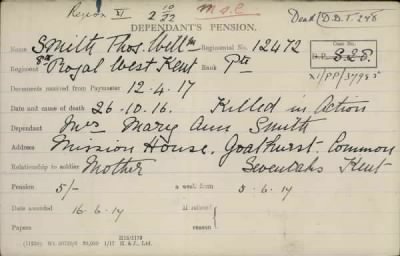 Region XI 2 10/22 M.S.C. Dead (D.D.T. 248
DEPENDANT'S PENSION.
Name Smith Thos. Willm Regimental No. 12472
Regiment 8th Royal West Kent Rank Pte
Case No.
D.P. S.28.
XI/DP/3798
Documents received from Paymaster 12.4.17
Date and cause of death 26.10.16. Killed in Action
Dependant Mrs Mary Ann Smith
Address Mission House, Goathurst Common
Sevenoaks Kent
Relationship to soldier Mother
Pension 5/- a week from 5.6.17
Date awarded 16.6.17 If refused
reason
Papers
H. & J., Ltd.